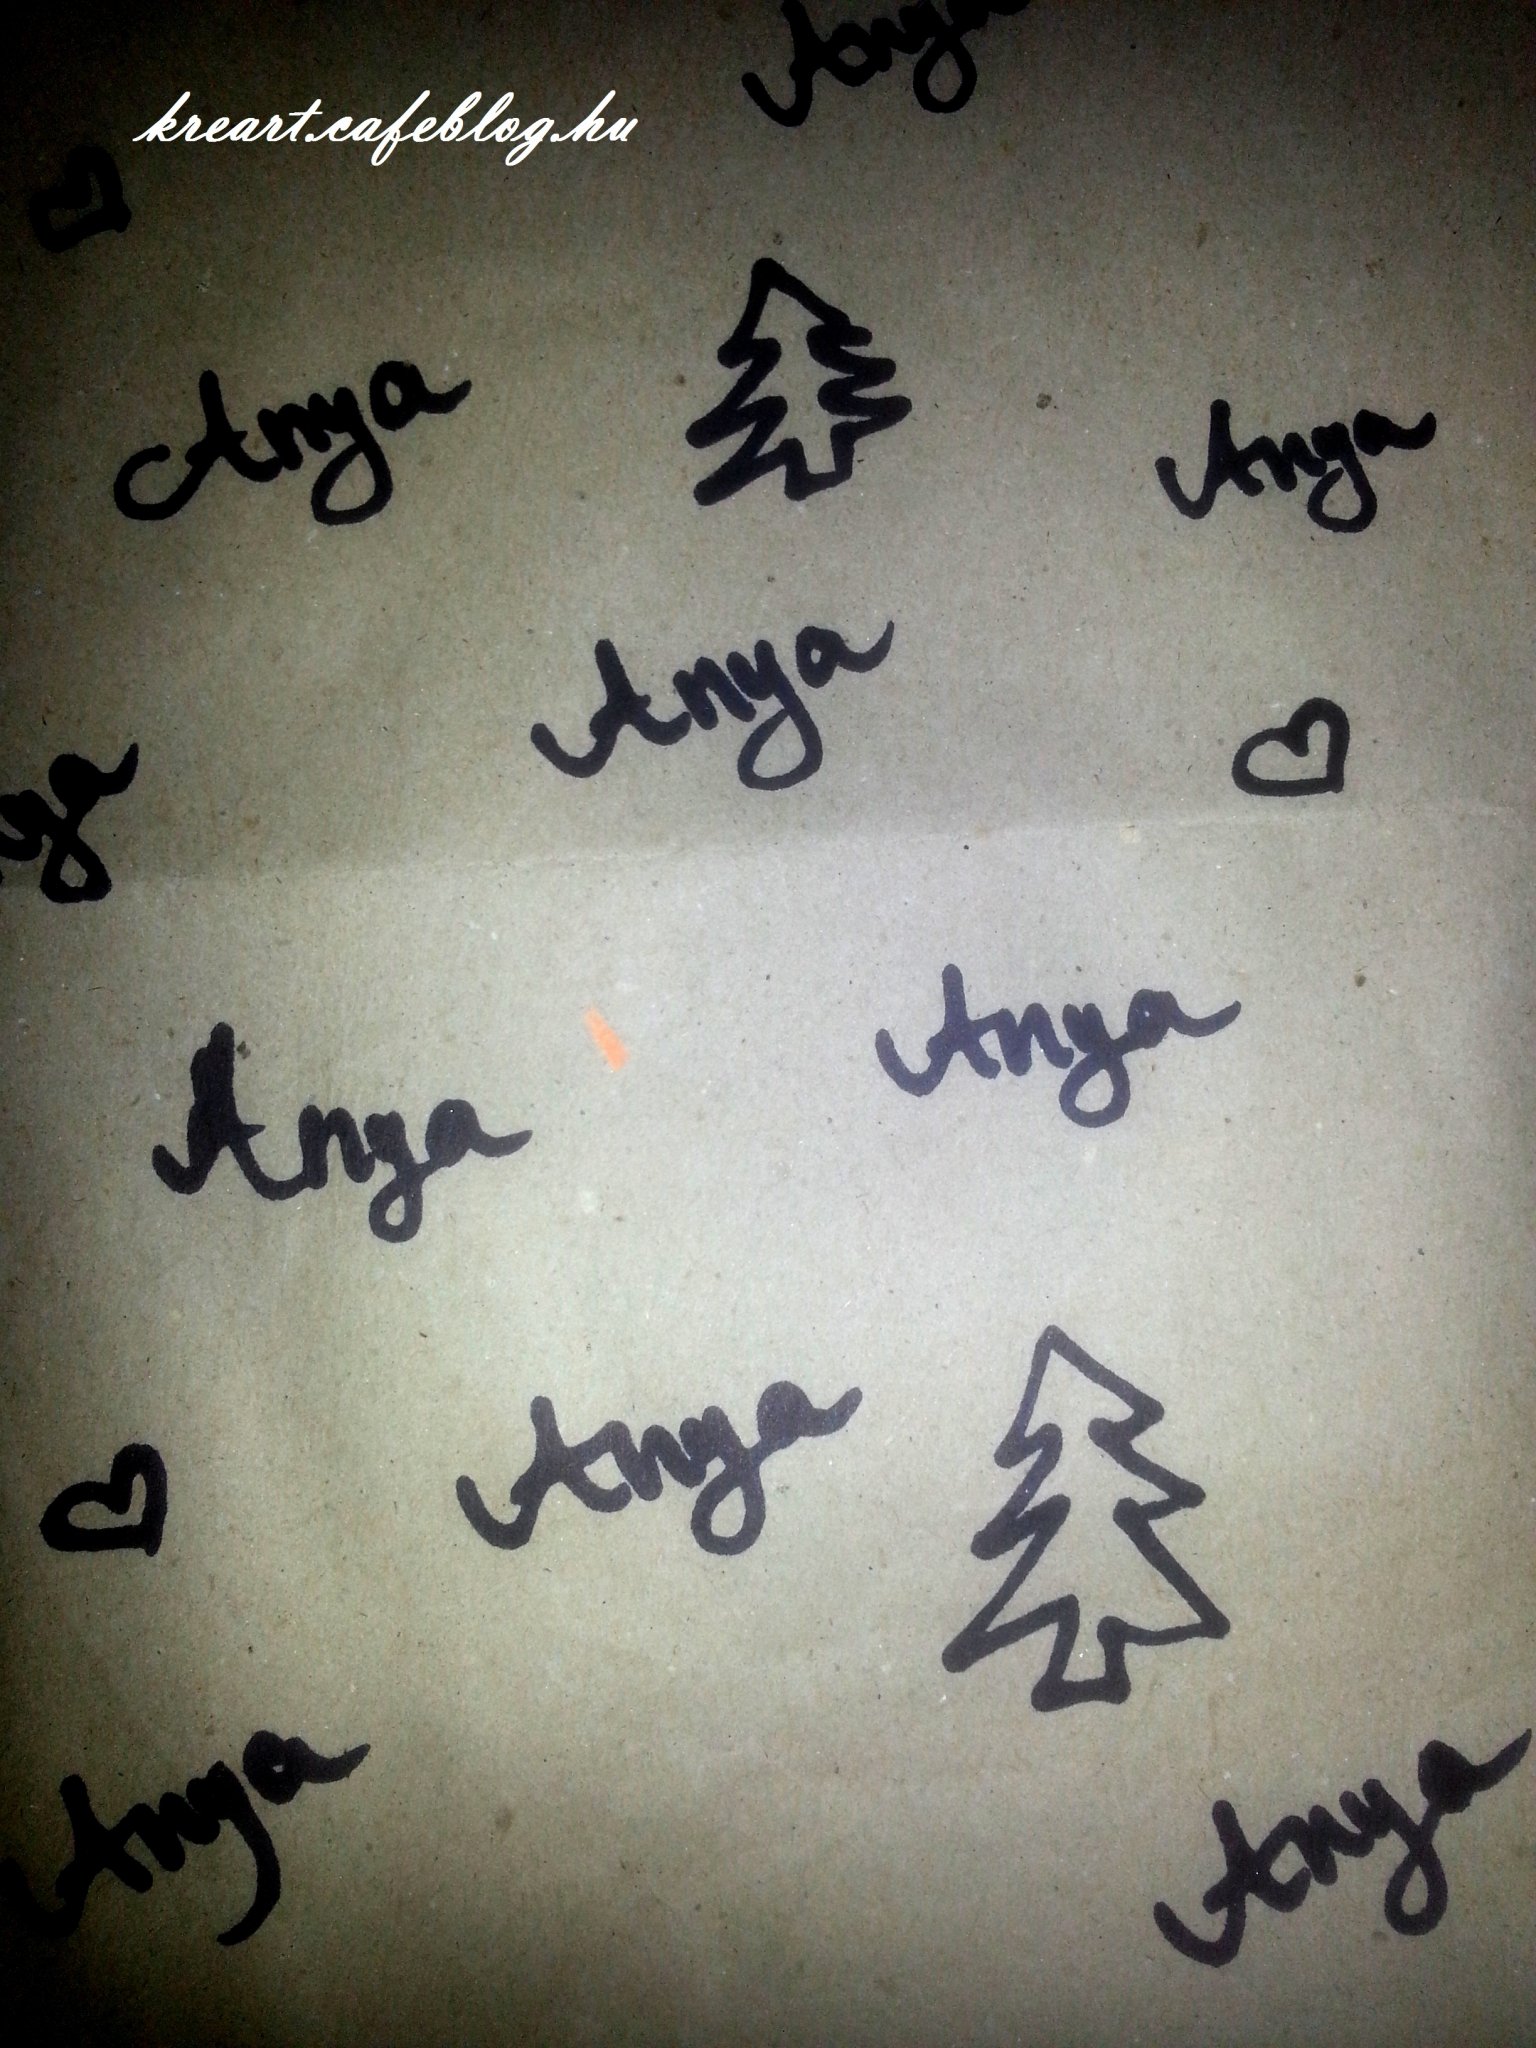 Anya
kreart.cafeblog.hu
Anya
Anya
Anya
Anya
Anya
Anya
Anya
Anya